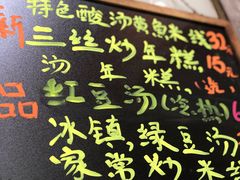 新
特色酸汤黄鱼米线32
三丝炒年糕,15元
汤年糕,
品
红豆汤(冷热)6
冰镇,绿豆汤
家常炒米